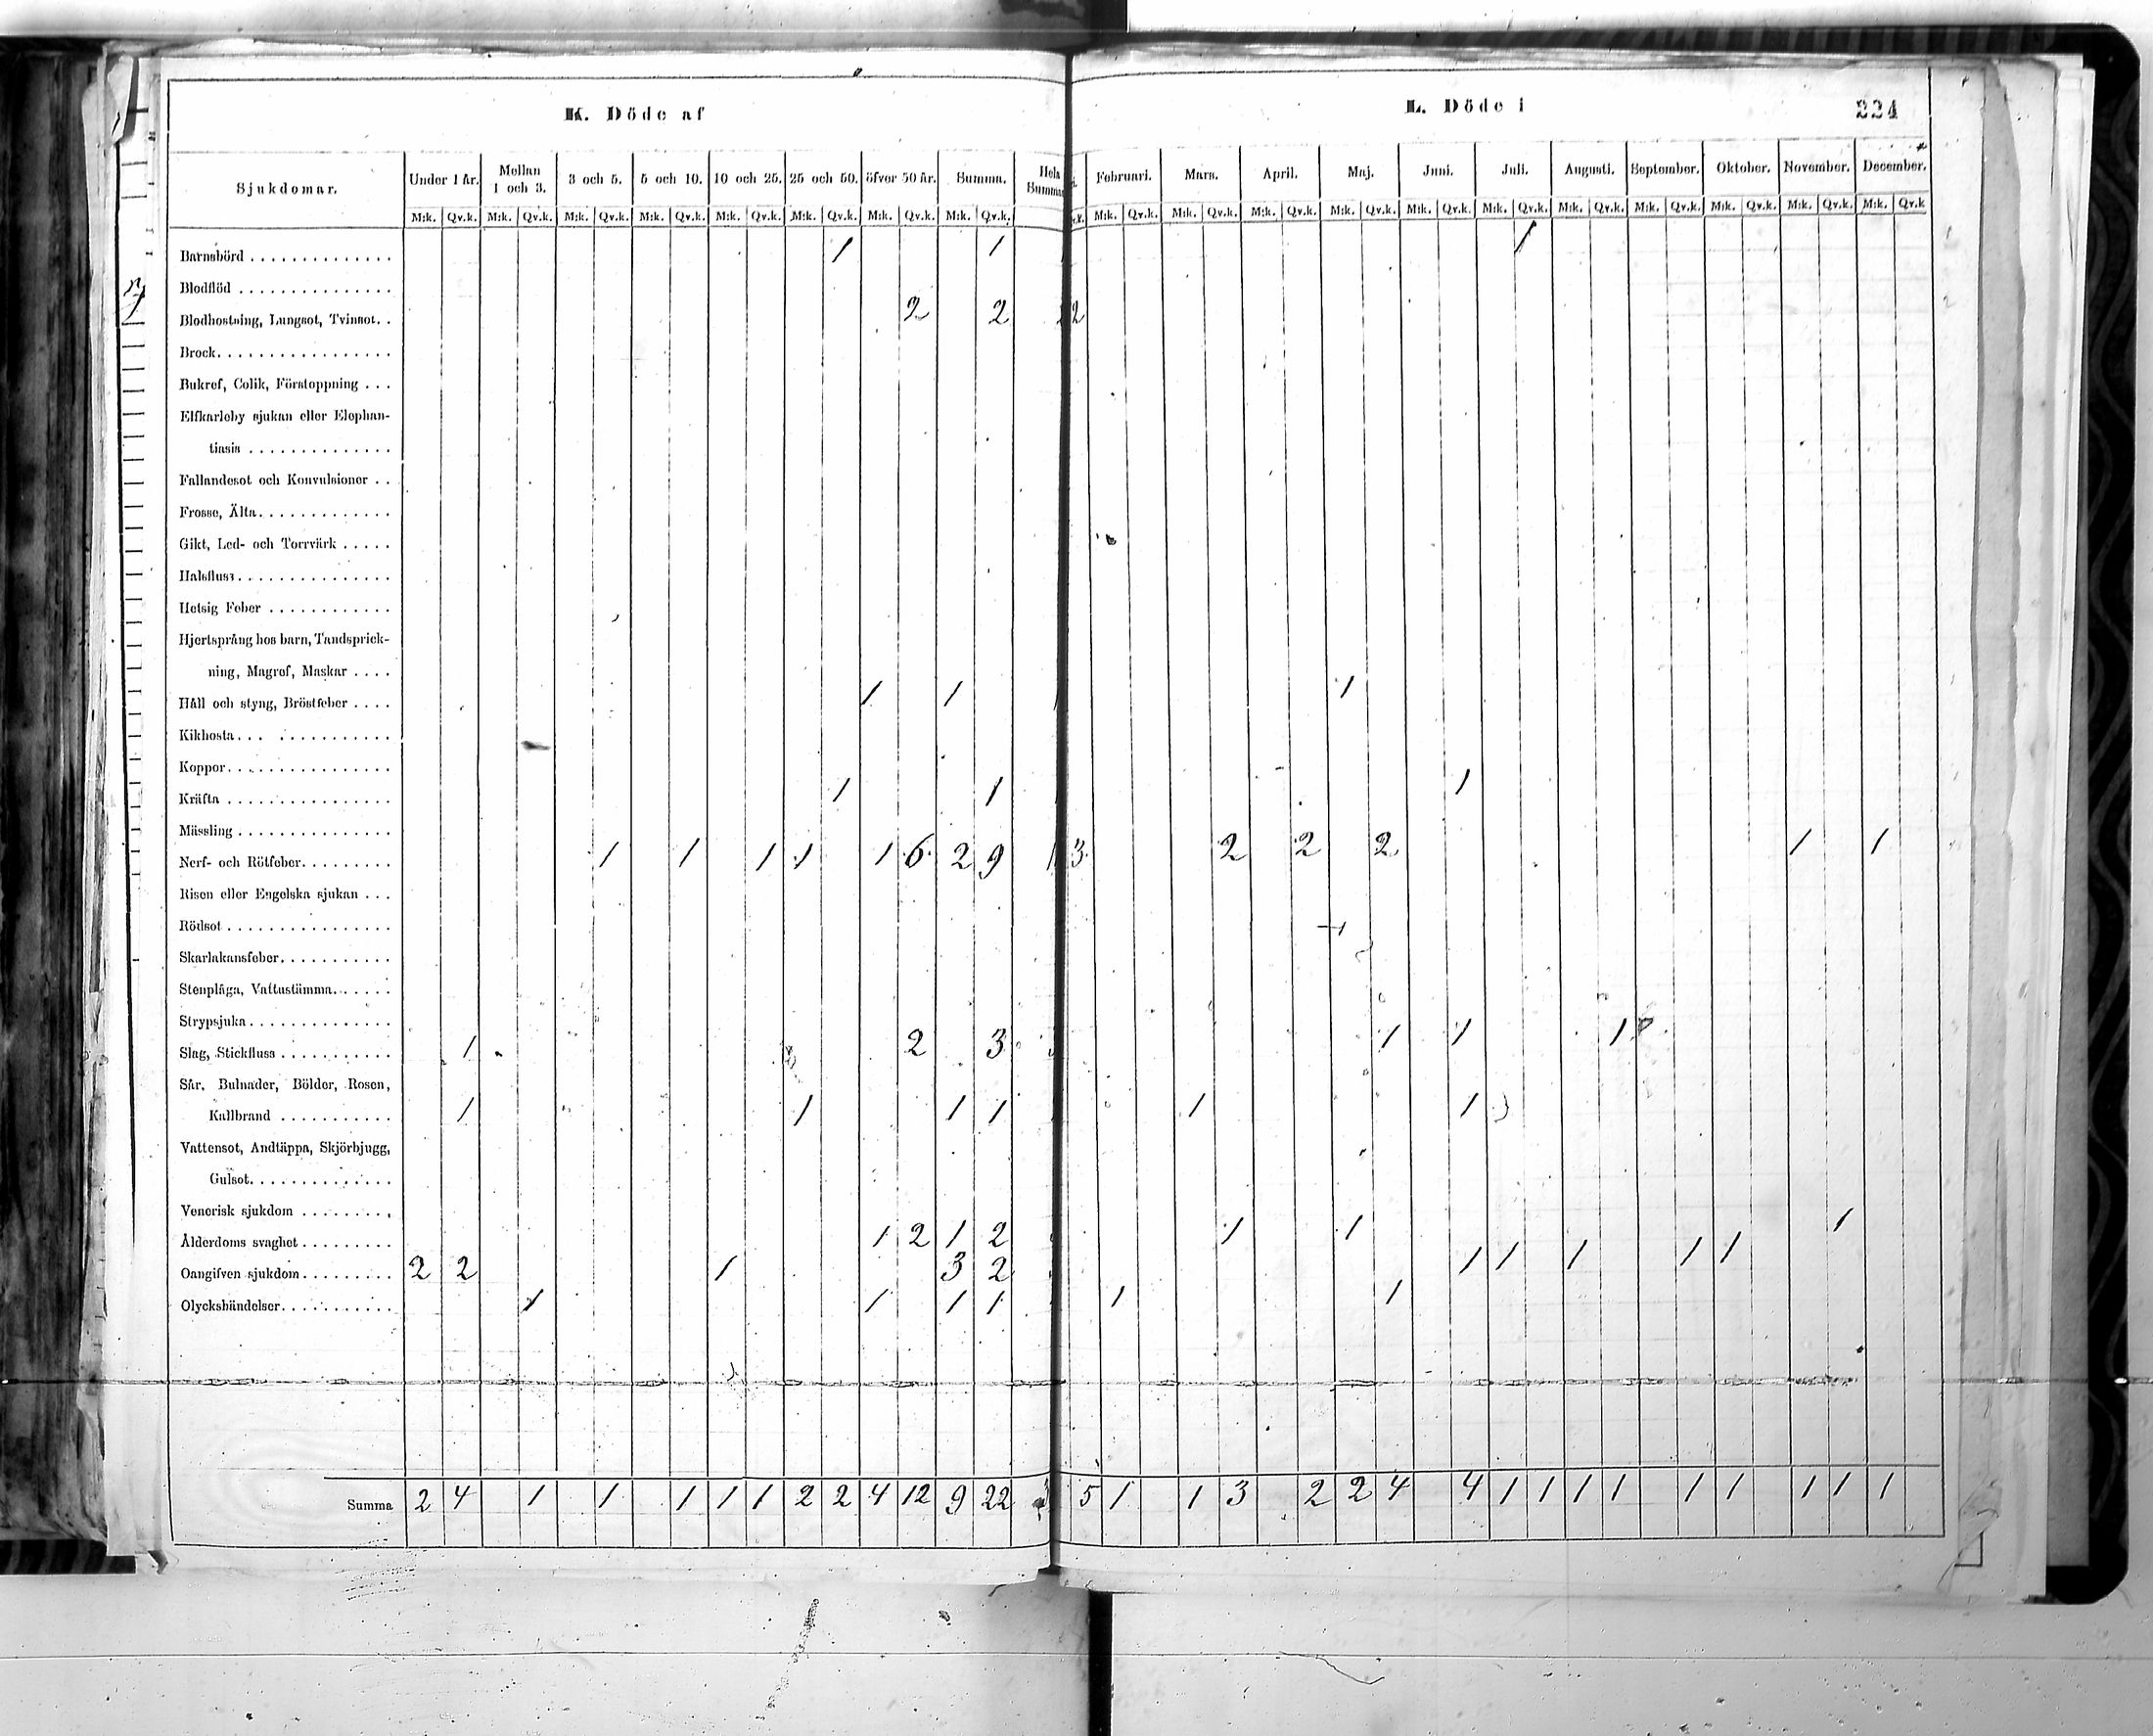 K. Döde af
L. Döde i
224
Sjukdomar.
Under 1 år. Mellan 1 och 3. 3 och 5. 5 och 10. 10 och 25. 25 och 50. öfver 50 år. Summa. Hela Summa
Februari. Mars. April. Maj. Juni. Juli. Augusti. September. Oktober. November. December.
M:k. Qv.k. M:k. Qv.k. M:k. Qv.k. M:k. Qv.k. M:k. Qv.k. M:k. Qv.k. M:k. Qv.k. M:k. Qv.k.
M:k. Qv.k. M:k. Qv.k. M:k. Qv.k. M:k. Qv.k. M:k. Qv.k. M:k. Qv.k. M:k. Qv.k. M:k. Qv.k. M:k. Qv.k. M:k. Qv.k. M:k. Qv.k
Barnsbörd . . . . . . . . . . . . . . 1 1 1
Blodflöd . . . . . . . . . . . . . . .
Blodhostning, Lungsot, Tvinsot. . 2 2 2
Brock. . . . . . . . . . . . . . . . .
Bukref, Colik, Förstoppning . . .
Elfkarleby sjukan eller Elephan-
tiasis . . . . . . . . . . . . . .
Fallandesot och Konvulsioner . .
Frosse, Älta. . . . . . . . . . . . .
Gikt, Led- och Torrvärk . . . . .
Halsfluss. . . . . . . . . . . . . . .
Hetsig Feber . . . . . . . . . . . .
Hjertsprång hos barn, Tandsprick-
ning, Magref, Maskar . . . .
Håll och styng, Bröstfeber . . . . 1 1 1
Kikhosta. . . . . . . . . . . . . .
Koppor. . . . . . . . . . . . . . . .
Kräfta . . . . . . . . . . . . . . . . 1 1 1
Mässling . . . . . . . . . . . . . . .
Nerf- och Rötfeber. . . . . . . . . 1 1 1 1 1 6 2 9 1 3 2 2 2 1 1
Risen eller Engelska sjukan . . .
Rödsot . . . . . . . . . . . . . . . .
Skarlakansfeber. . . . . . . . . . .
Stenplåga, Vattustämma. . . . . .
Strypsjuka. . . . . . . . . . . . . .
Slag, Stickfluss . . . . . . . . . . . 1 2 3 1 1 1
Sår, Bulnader, Bölder, Rosen,
Kallbrand . . . . . . . . . . . 1 1 1 1 1 1
Vattensot, Andtäppa, Skjörbjugg,
Gulsot. . . . . . . . . . . . . .
Venerisk sjukdom . . . . . . . . .
Ålderdoms svaghet . . . . . . . . . 1 2 1 2 1 1 1
Oangifven sjukdom. . . . . . . . . 2 2 1 3 2 1 1 1 1 1
Olyckshändelser. . . . . . . . . . . 1 1 1 1 1 1
Summa 2 4 1 1 1 1 1 2 2 4 12 9 22 5 1 1 3 2 2 4 4 1 1 1 1 1 1 1 1 1